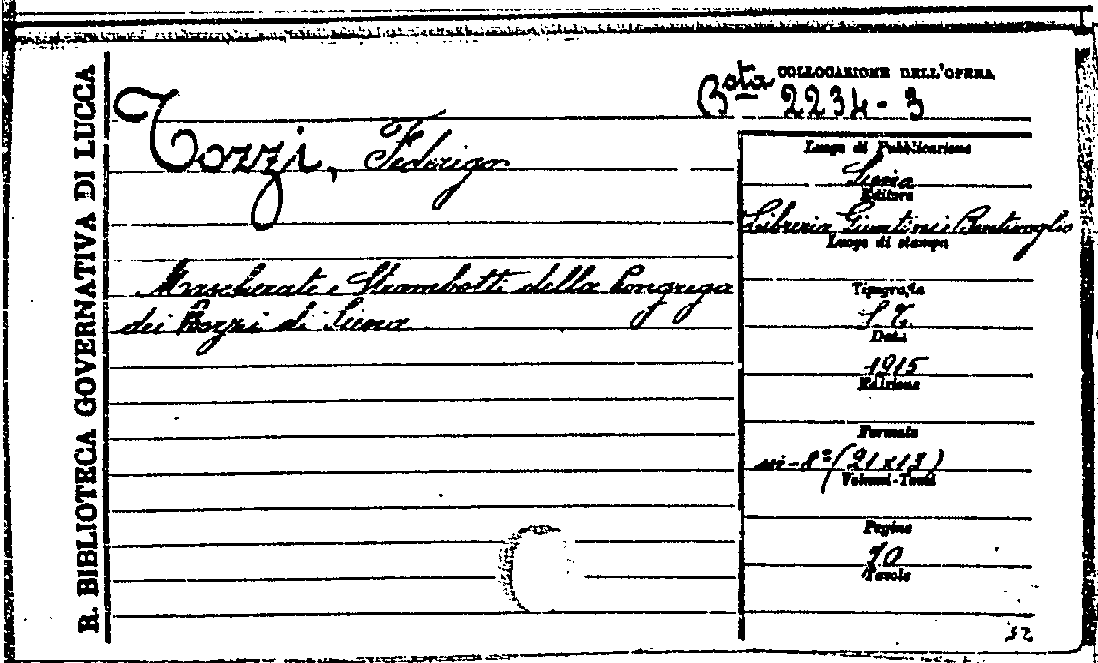 R. BIBLIOTECA GOVERNATIVA DI LUCCA
COLLOCAZIONE DELL'OPERA
Bta 2234-3
Tozzi, Federigo
Mascherate e Strambotti della Congrega
dei Rozzi di Siena
Luogo di Pubblicazione
Siena
Editore
Libreria Giuntini Bentivoglio
Luogo di stampa
Tipografia
S. T.
Data
1915
Edizione
Formato
in-8º (21x13)
Volumi-Tomi
Pagine
70
Tavole
32